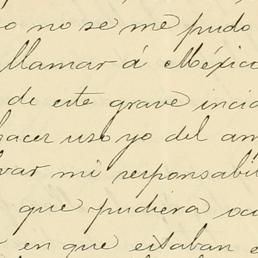 o no se me pudo
llamar á México
de este grave incid
hacer uso yo del am
var mi responsabi
que pudiera oc
en que estaban e